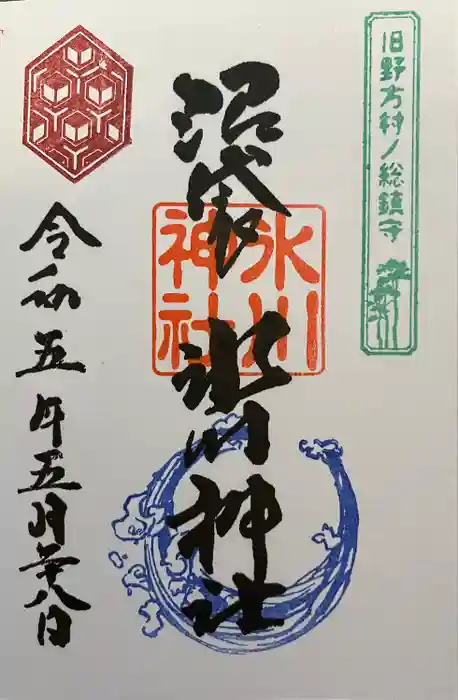 旧野方村ノ総鎮守
沼袋
氷川神社
氷川
神社
令和五年五月廿八日